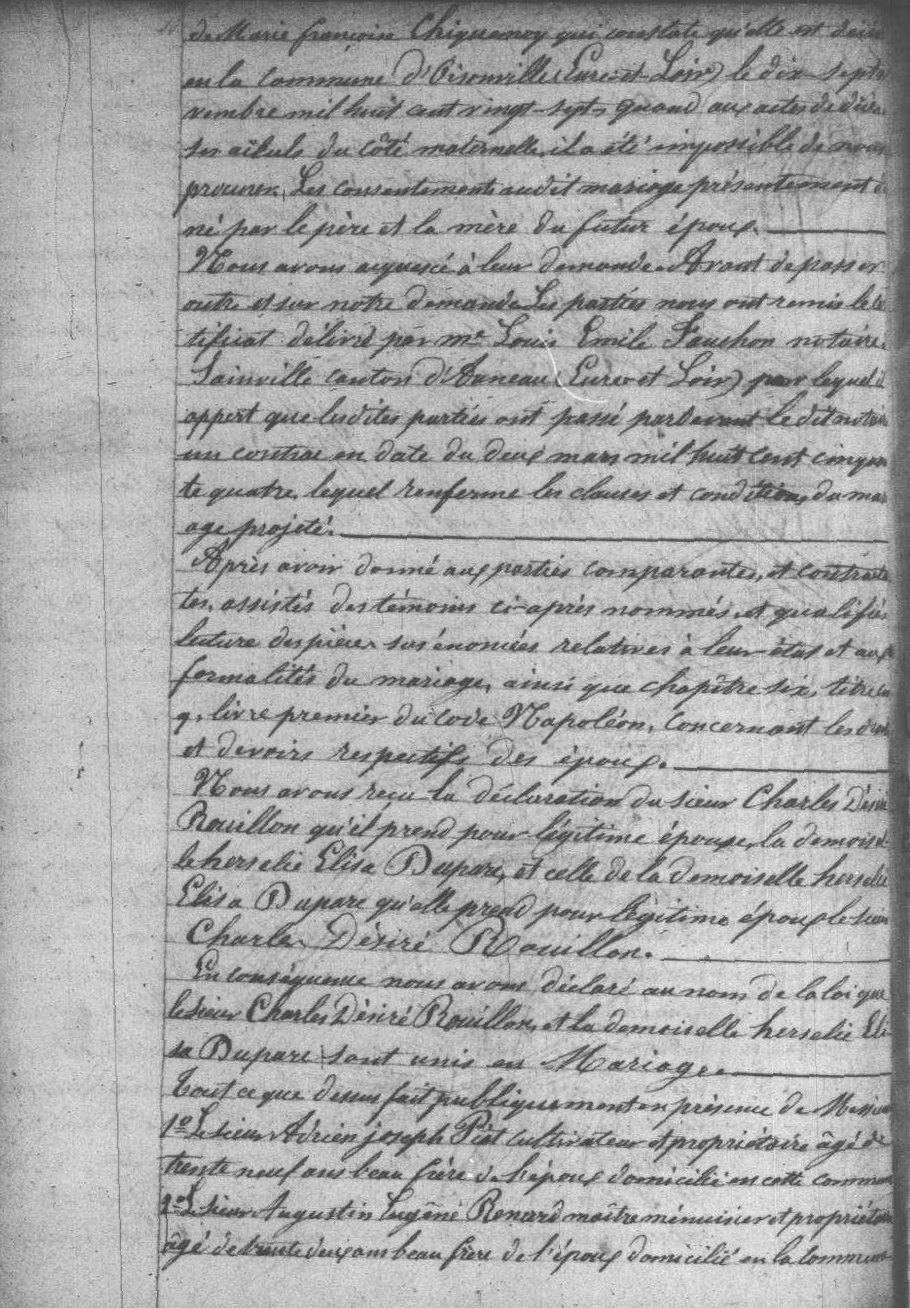 de Marie françoise Chiquemoy qui constate qu'elle est décé
en la commune d'Oisonville (Eure et Loir) le dix sept
vembre mil huit cent vingt-sept, quand aux actes de décè
ses aïeuls du côté maternelle, il a été impossible de nous
procurer, Les consentements audit mariage présentement d
né par le père et la mère du futur époux.
Nous avons acquiescé à leur demande Avant de passer
outre et sur notre demande Les parties nous ont remis le ce
tificat délivré par me Louis Emile Fauchon notaire
Sainville canton d'Auneau (Eure et Loir) par lequel il
appert que lesdites parties ont passé pardevant le dit notair
un contrat en date du deux mars mil huit cent cinquan
te quatre, lequel renferme les clauses et conditions du mari
age projeté.
Après avoir donné aux parties comparantes, et contractan
tes, assistés des témoins ci-après nommés, et qualifiés
lecture des pièces sus énoncées relatives à leur état et aux
formalités du mariage, ainsi que chapître six, titre cin
q, livre premier du code Napoléon, concernant les droits
et devoirs respectifs des époux.
Nous avons reçu la déclaration du sieur Charles Désiré
Rouillon qu'il prend pour légitime épouse, la demoisel
le herselie Elisa Dupare, et celle de la demoiselle herselie
Elisa Dupare qu'elle prend pour légitime époux le sieur
Charles Désiré Rouillon.
En conséquence nous avons déclaré au nom de la loi que
le sieur Charles Désiré Rouillon, et la demoiselle herselie Eli
sa Dupare sont unis en Mariage.
Tout ce que dessus fait publiquement en présence de Messieurs
1º Le sieur Adrien joseph Piet cultivateur et propriétaire âgé de
trente neuf ans beau frère de l'époux domicilié en cette commune
2º Le sieur Augustin Eugêné Renard maître menuisier et propriétaire
âgé de trente deux ans beau frère de l'époux domicilié en la commune